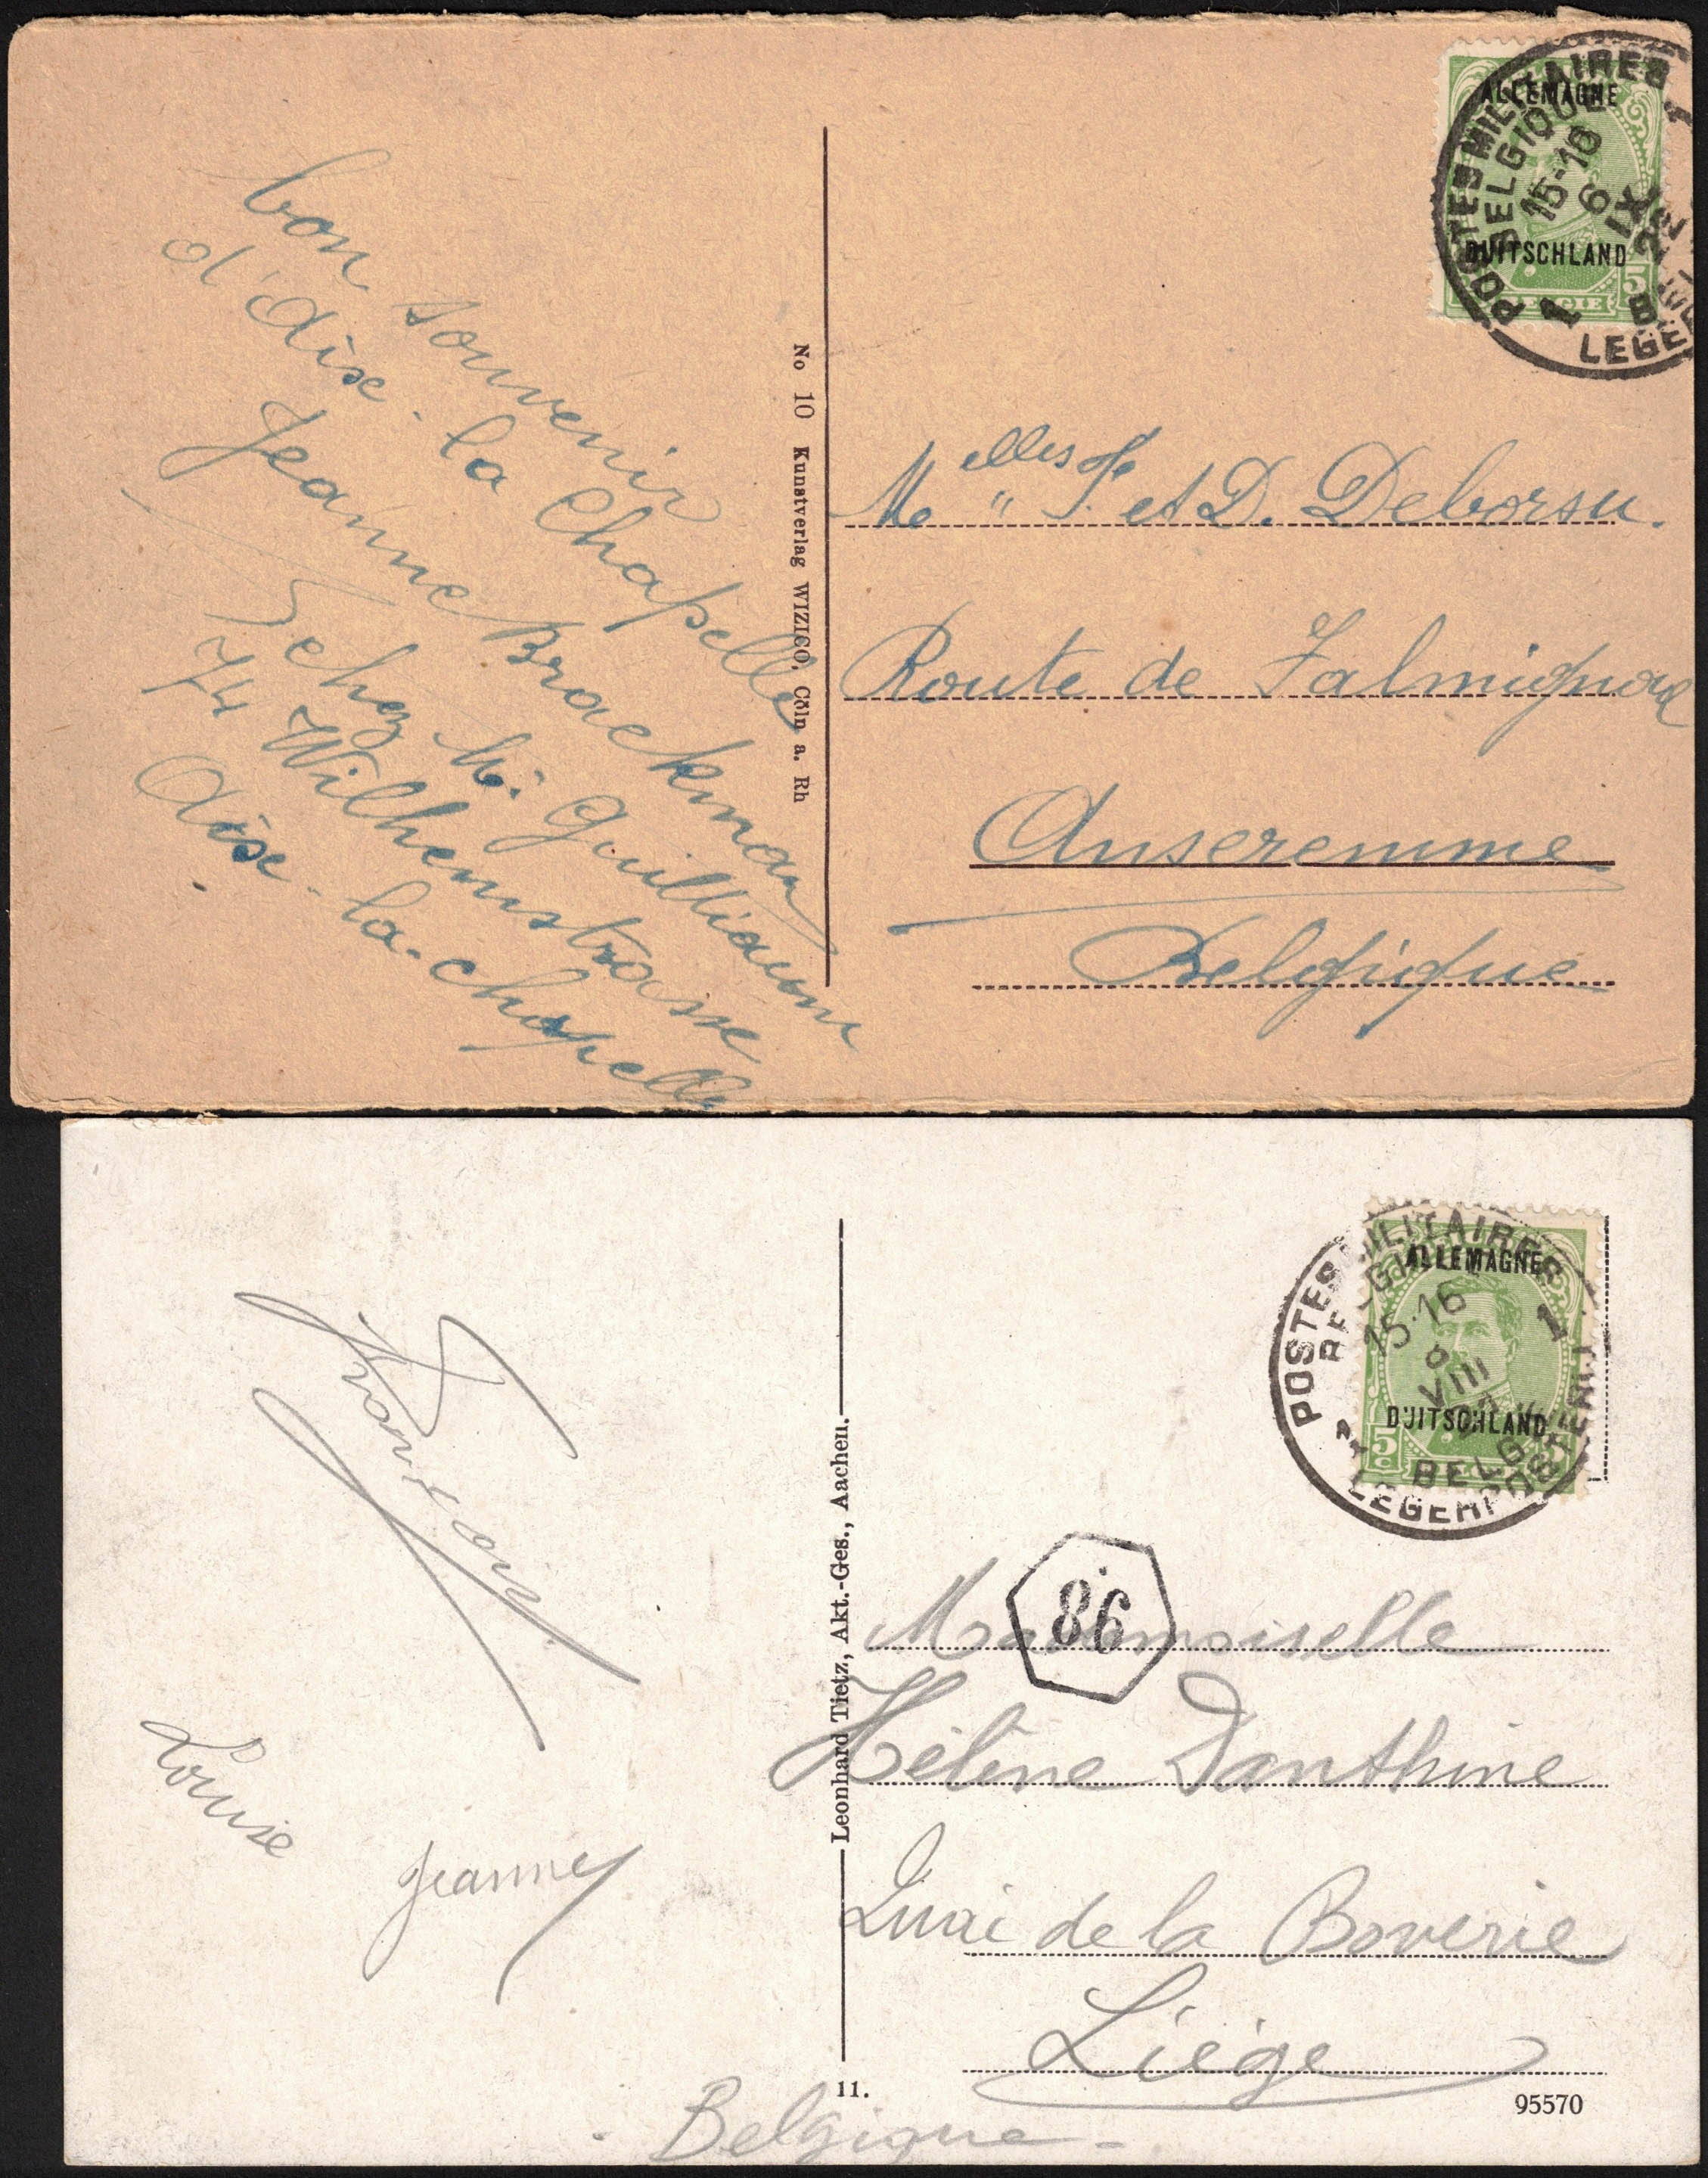 bon souvenir
d'Aix-la Chapelle
Jeanne Brackman
chez Mr Guilliaume
74 Wilhemstrasse
Aix-la-chapelle
No 10 Kunstverlag WIZICO, Cöln a. Rh
ALLEMAGNE
DUITSCHLAND
BELGIE 5
POSTES MILITAIRES
BELGIQUE
15-16
6
IX
1
Melles F. et D. Deborsu.
Route de Falmignoul
Anseremme
Belgique
Louise
Jeanne
Leonhard Tietz, Akt.-Ges., Aachen.
11.
ALLEMAGNE
DUITSCHLAND
5c
POSTES MILITAIRES
BELGIQUE
15-16
VIII
1
BELG
LEGERPOSTERIJ
86
Mademoiselle
Hélène Danthine
Quai de la Boverie
Liége
Belgique
95570